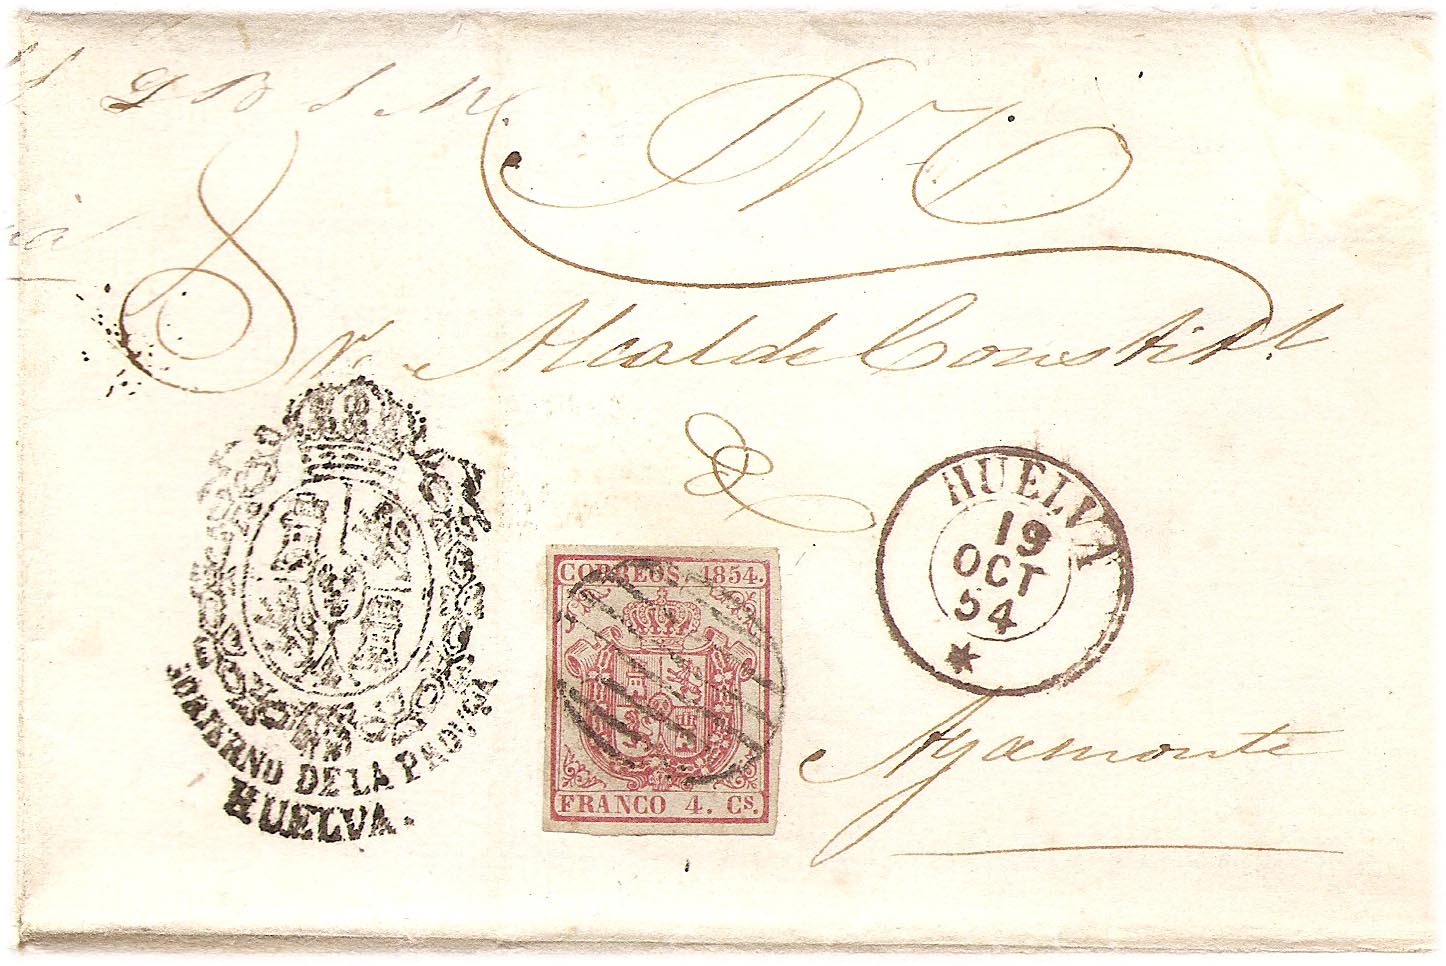 S. N.
Sr. Alcalde Constitl.
&
GOBIERNO DE LA PROVCIA
HUELVA.
CORREOS 1854.
FRANCO 4. Cs.
HUELVA
19
OCT
54
Ayamonte